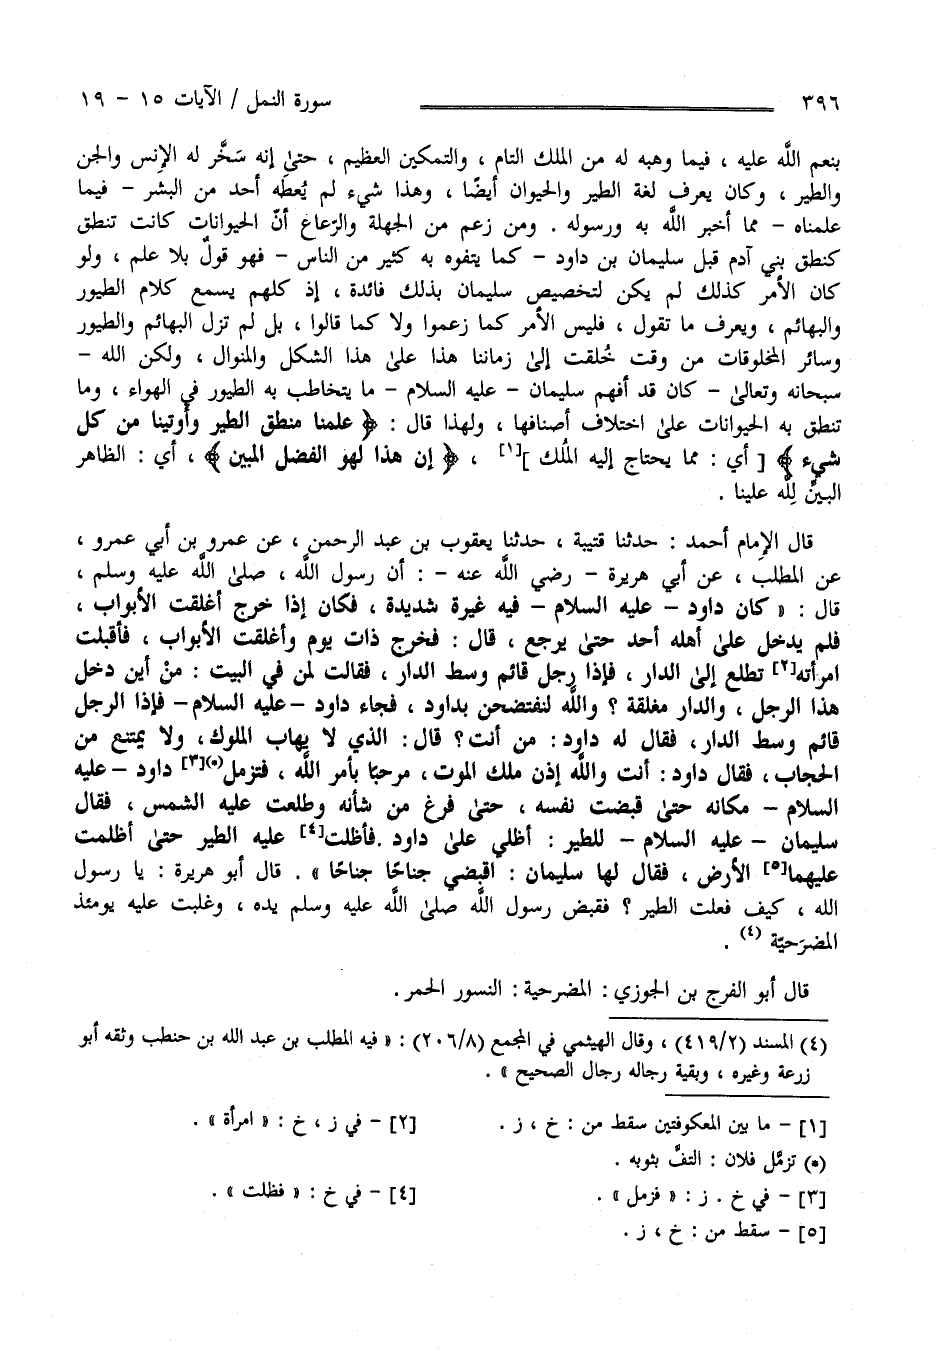 ٣٩٦ سورة النمل / الآيات ١٥ - ١٩
بنعم اللَّه عليه ، فيما وهبه له من الملك التام ، والتمكين العظيم ، حتىٰ إنه سَخَّر له الإنس والجن
والطير ، وكان يعرف لغة الطير والحيوان أيضًا ، وهذا شيء لم يُعطَه أحد من البشر - فيما
علمناه - مما أخبر اللَّه به ورسوله . ومن زعم من الجهلة والرّعاع أنّ الحيوانات كانت تنطق
كنطق بني آدم قبل سليمان بن داود - كما يتفوه به كثير من الناس - فهو قولٌ بلا علم ، ولو
كان الأمر كذلك لم يكن لتخصيص سليمان بذلك فائدة ، إذ كلهم يسمع كلام الطيور
والبهائم ، ويعرف ما تقول ، فليس الأمر كما زعموا ولا كما قالوا ، بل لم تزل البهائم والطيور
وسائر المخلوقات من وقت خُلقت إلىٰ زماننا هذا علىٰ هذا الشكل والمنوال ، ولكن الله -
سبحانه وتعالىٰ - كان قد أفهم سليمان - عليه السلام - ما يتخاطب به الطيور في الهواء ، وما
تنطق به الحيوانات علىٰ اختلاف أصنافها ، ولهذا قال : ﴿ علمنا منطق الطير وأوتينا من كل
شيء ﴾ [ أي : مما يحتاج إليه المُلك ][١] ، ﴿ إن هذا لهو الفضل المبين ﴾ ، أي : الظاهر
البينّ للَّه علينا .
قال الإمام أحمد : حدثنا قتيبة ، حدثنا يعقوب بن عبد الرحمن ، عن عمرو بن أبي عمرو ،
عن المطلب ، عن أبي هريرة - رضي اللَّه عنه - : أن رسول اللَّه ، صلىٰ اللَّه عليه وسلم ،
قال : « كان داود - عليه السلام - فيه غيرة شديدة ، فكان إذا خرج أغلقت الأبواب ،
فلم يدخل علىٰ أهله أحد حتىٰ يرجع ، قال : فخرج ذات يوم وأغلقت الأبواب ، فأقبلت
امرأته[٢] تطلع إلىٰ الدار ، فإذا رجل قائم وسط الدار ، فقالت لمن في البيت : منْ أين دخل
هذا الرجل ، والدار مغلقة ؟ واللَّه لنفتضحن بداود ، فجاء داود -عليه السلام- فإذا الرجل
قائم وسط الدار، فقال له داود: من أنت؟ قال: الذي لا يهاب الملوك، ولا يمتنع من
الحجاب، فقال داود: أنت واللَّه إذن ملك الموت، مرحبًا بأمر اللَّه ، فتزمل(*)[٣] داود -عليه
السلام - مكانه حتىٰ قبضت نفسه ، حتىٰ فرغ من شأنه وطلعت عليه الشمس ، فقال
سليمان - عليه السلام - للطير : أظلي علىٰ داود .فأظلت[٤] عليه الطير حتىٰ أظلمت
عليهما[٥] الأرض ، فقال لها سليمان : اقبضي جناحًا جناحًا » . قال أبو هريرة : يا رسول
الله ، كيف فعلت الطير ؟ فقبض رسول اللَّه صلىٰ اللَّه عليه وسلم يده ، وغلبت عليه يومئذ
المضرَحيّة (٤) .
قال أبو الفرج بن الجوزي : المضرحية : النسور الحمر .
(٤) المسند (٤١٩/٢) ، وقال الهيثمي في المجمع (٢٠٦/٨) : « فيه المطلب بن عبد الله بن حنطب وثقه أبو
زرعة وغيره ، وبقية رجاله رجال الصحيح » .
[١] - ما بين المعكوفتين سقط من : خ ، ز . [٢] - في ز ، خ : « امرأة » .
(*) تزمَّل فلان : التفَّ بثوبه .
[٣] - في خ . ز : « فزمل » . [٤] - في خ : « فظلت » .
[٥] - سقط من : خ ، ز .